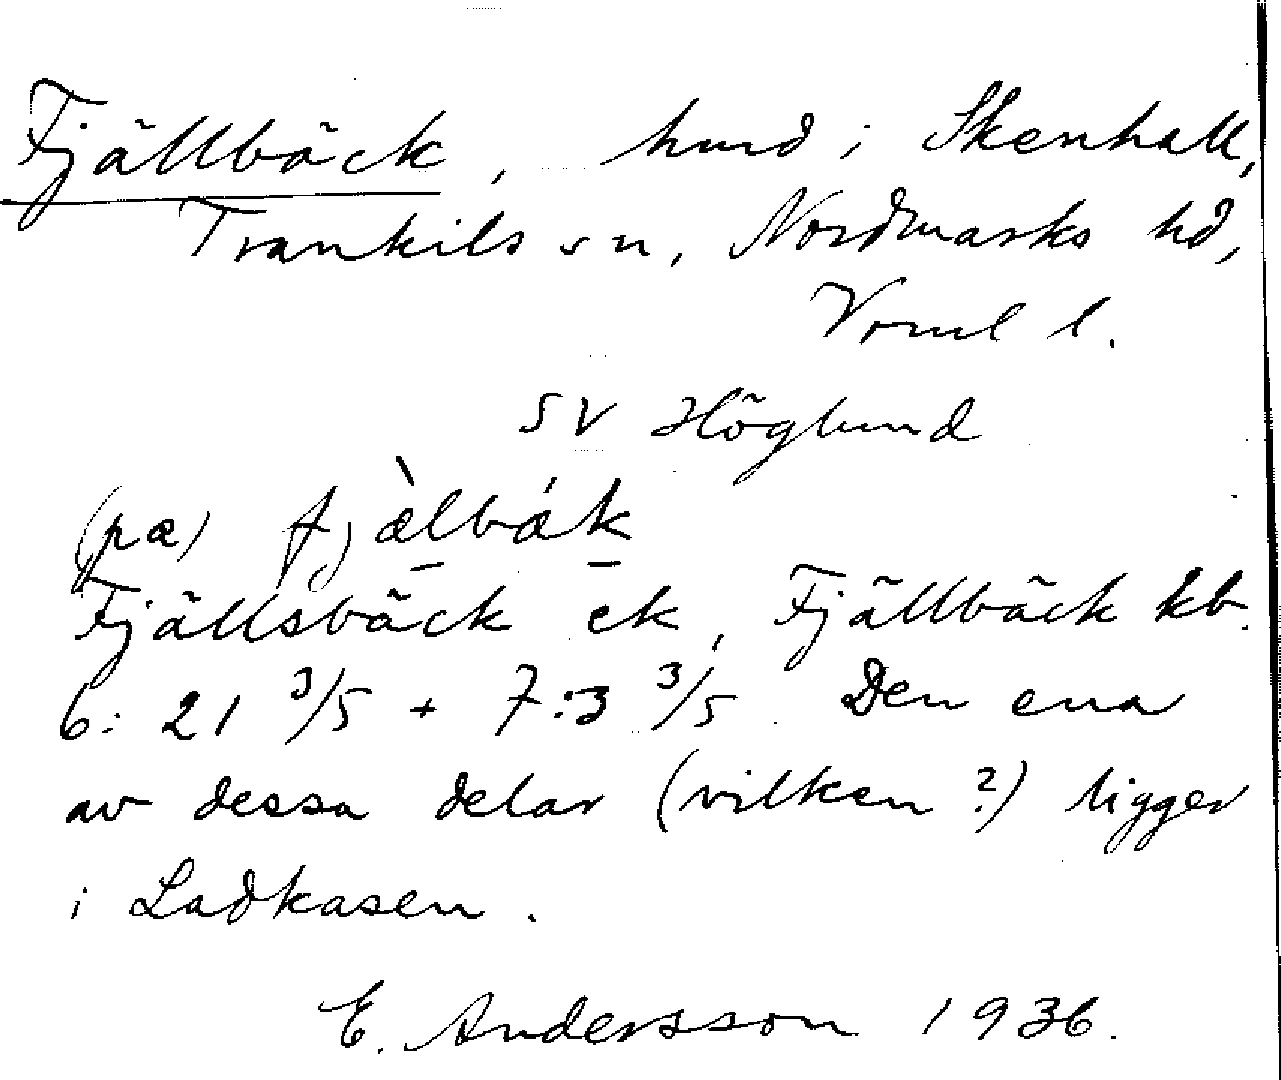 Fjällbäck, hmd i Skenhall,
Trankils sn, Nordmarks hd,
Vrml l.
SV Höglund
(pæ) fjæ̀lbǽk
Fjällsbäck ek, Fjällbäck kb.
6:21 3/5 + 7:3 3/5. Den ena
av dessa delar (vilken?) ligger
i Ladkasen.
E. Andersson 1936.